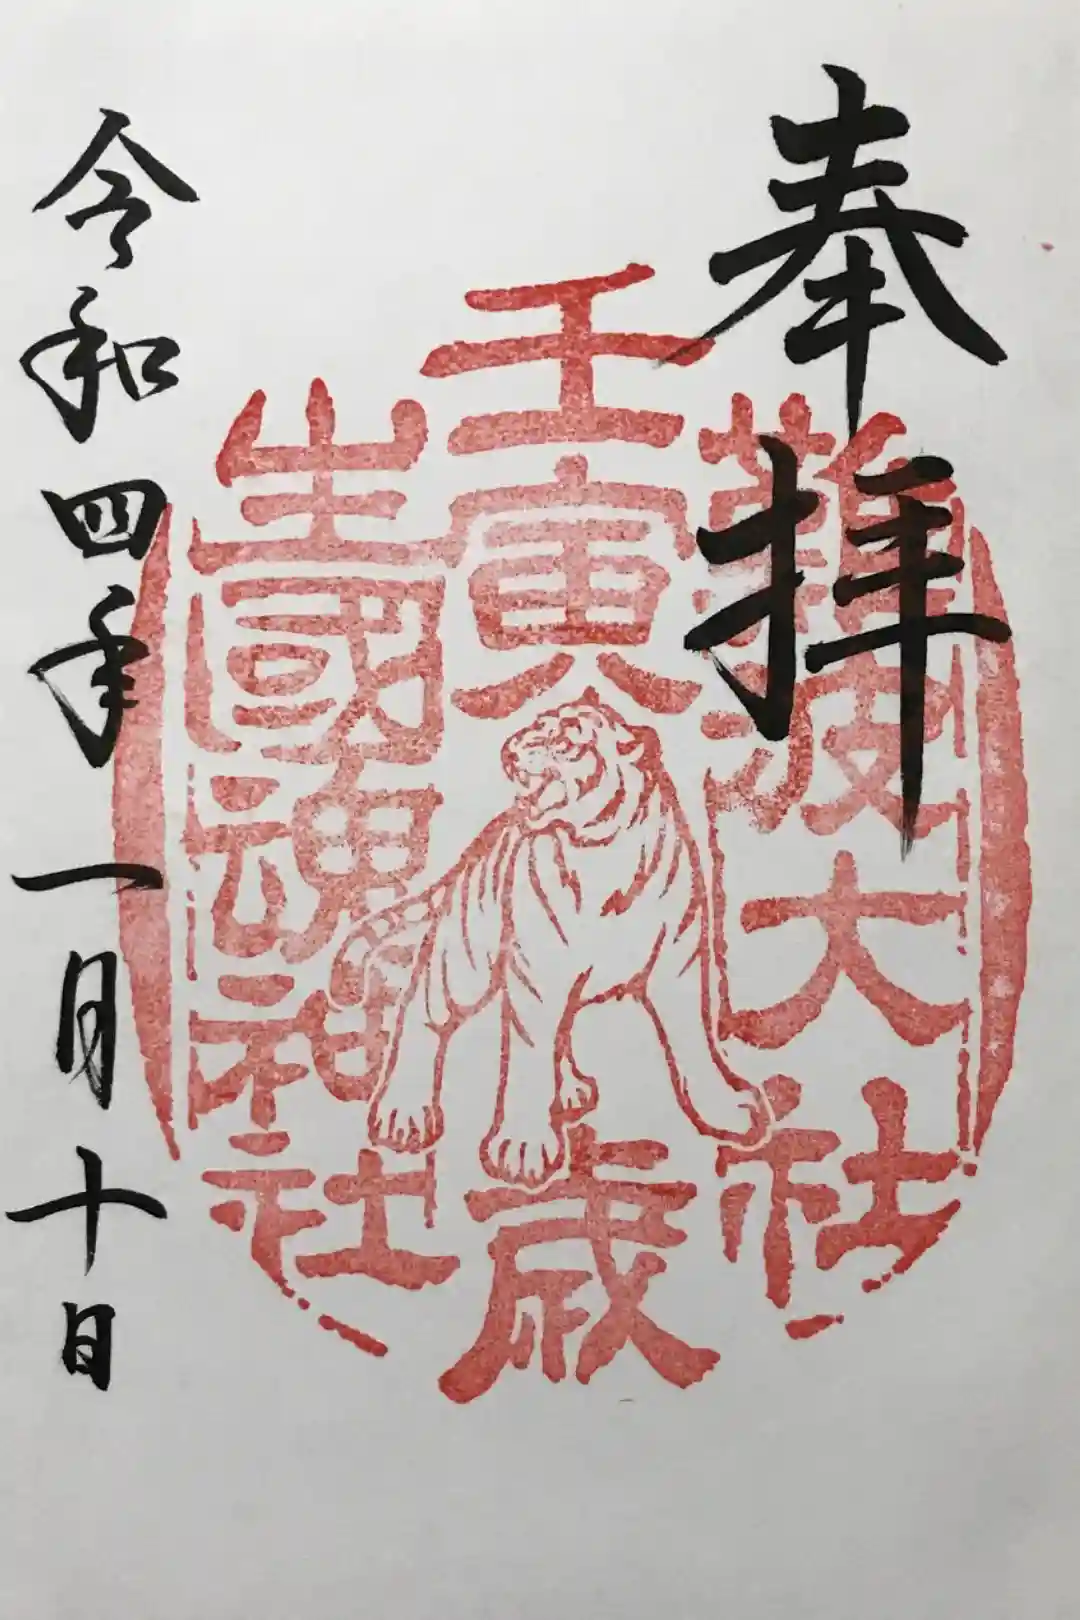 奉拝
難波大社
壬寅
歳
生國魂神社
令和四年一月十日